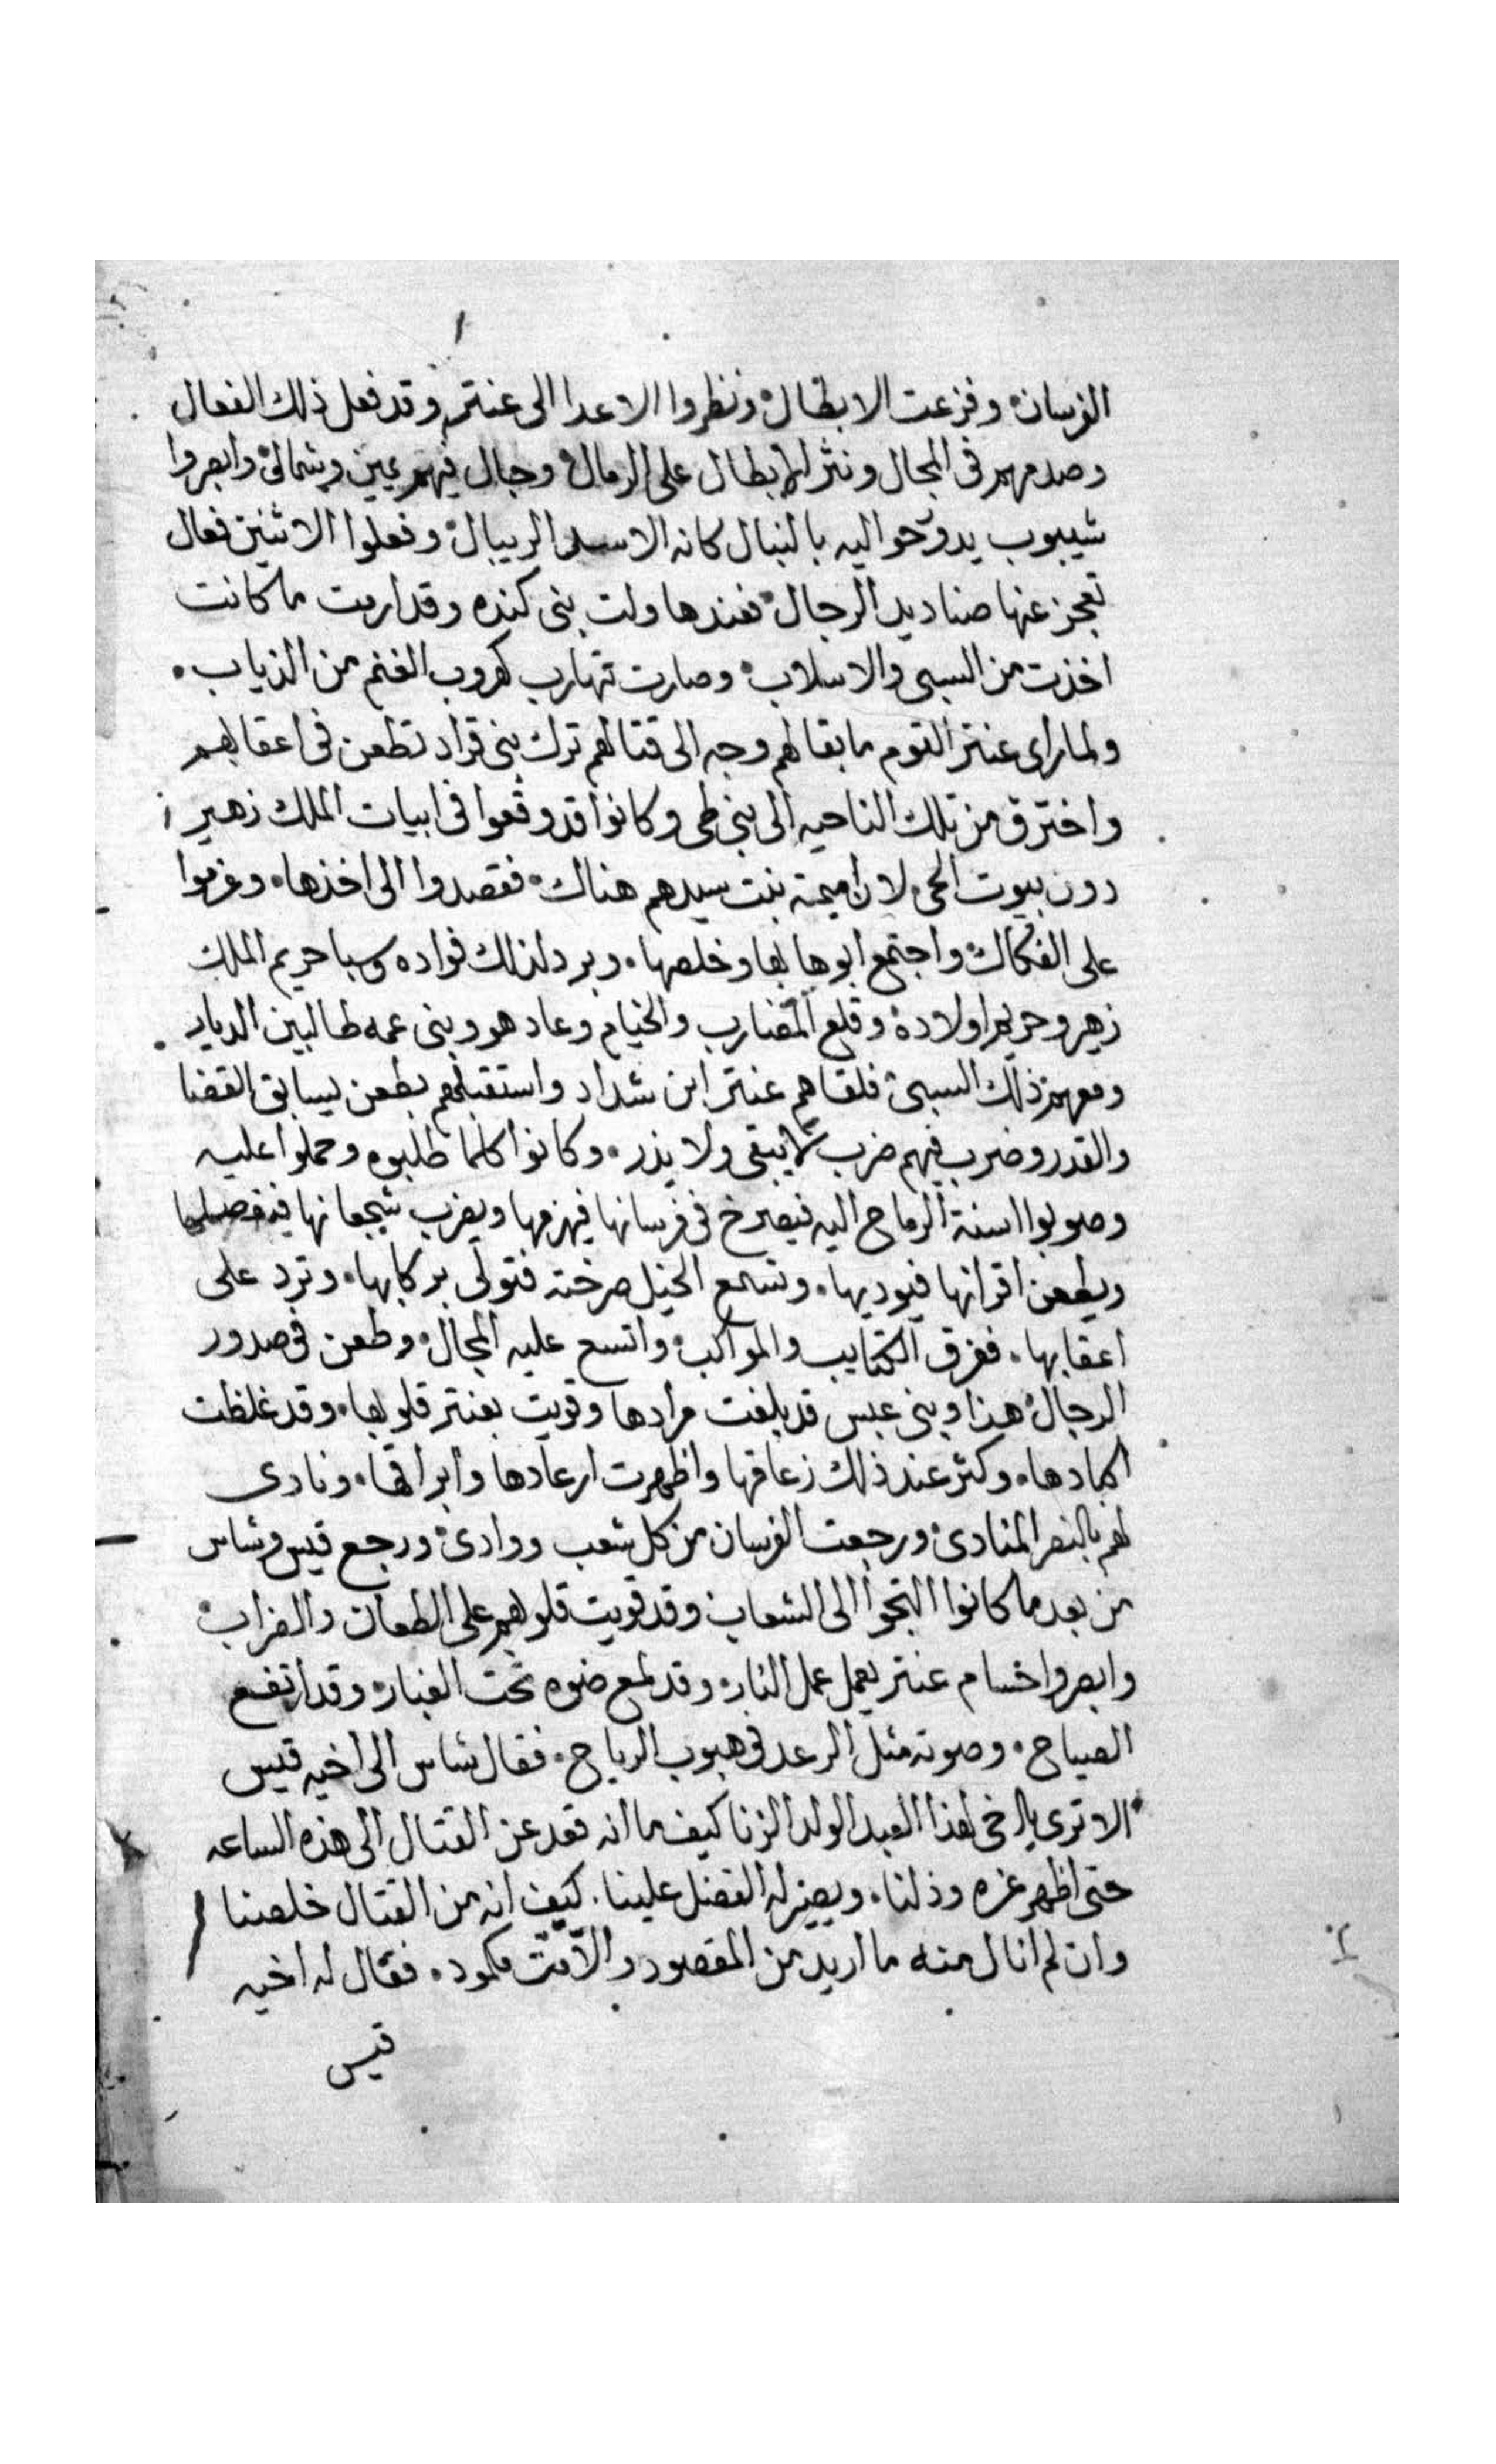 الفرسان وفزعت الابطال ونظروا الاعدا الى عنتر وقد فعل ذلك الفعال
وصدمهم فى المجال ونثر الابطال على الرمال وجال فيهم يمين وشمال وابصروا
شيبوب يدور حواليه بالنبال كانه الاسد الريبال وفعلوا الاثنين فعال
تعجز عنها صناديد الرجال فعندها ولت بنى كنده وقد ارمت ما كانت
اخذت من السبى والاسلاب وصارت تهارب كهروب الغنم من الذياب
ولما راى عنتر القوم ما بقا لهم وجه الى قتالهم ترك بنى قراد تطعن فى اعقابهم
واخترق من تلك الناحيه الى بنى طى وكانوا قد وقعوا فى ابيات الملك زهير
دون بيوت الحى لان اميمة بنت سيدهم هناك فقصدوا الى اخذها وعزموا
على الفكاك واجتمع ابوها بها وخلصها وبرد لذلك فواده وسبا حريم الملك
زهير وحريم اولاده وقلع المضارب والخيام وعاد هو وبنى عمه طالبين الديار
ومعهم ذلك السبى فلقاهم عنتر ابن شداد واستقبلهم بطعن يسابق القضا
والقدر وضرب فيهم ضرب لا يبقى ولا يذر وكانوا كلما طلبوه وحملوا عليه
وصوبوا اسنة الرماح اليه فيصرخ فى فرسانها فيهزمها ويضرب شجعانها فيفصلها
ويطعن اقرانها فيوديها وتسمع الخيل صرخته فتولى بركابها وترد على
اعقابها ففرق الكتايب والمواكب واتسع عليه المجال وطعن فى صدور
الرجال هذا وبنى عبس قد بلغت مرادها وقويت بعنتر قلوبها وقد غلظت
اكبادها وكثر عند ذلك زعاقها واظهرت ارعادها وابراقها ونادى
لهم بالنصر المنادى ورجعت الفرسان من كل شعب ووادى ورجع قيس وشاس
من بعد ما كانوا التجوا الى الشعاب وقد قويت قلوبهم على الطعان والضراب
وابصروا حسام عنتر يعمل عمل النار وقد لمع ضوه تحت الغبار وقد ارتفع
الصياح وصوته مثل الرعد فى هبوب الرياح فقال شاس الى اخيه قيس
الا ترى يا اخى لهذا العبد الولد الزنا كيف ما انه قعد عن القتال الى هذه الساعه
حتى اظهر عزه وذلنا ويصير له الفضل علينا كيف انه من القتال خلصنا
وان لم انال منه ما اريد من المقصود والا مت مكمود فقال له اخيه
قيس